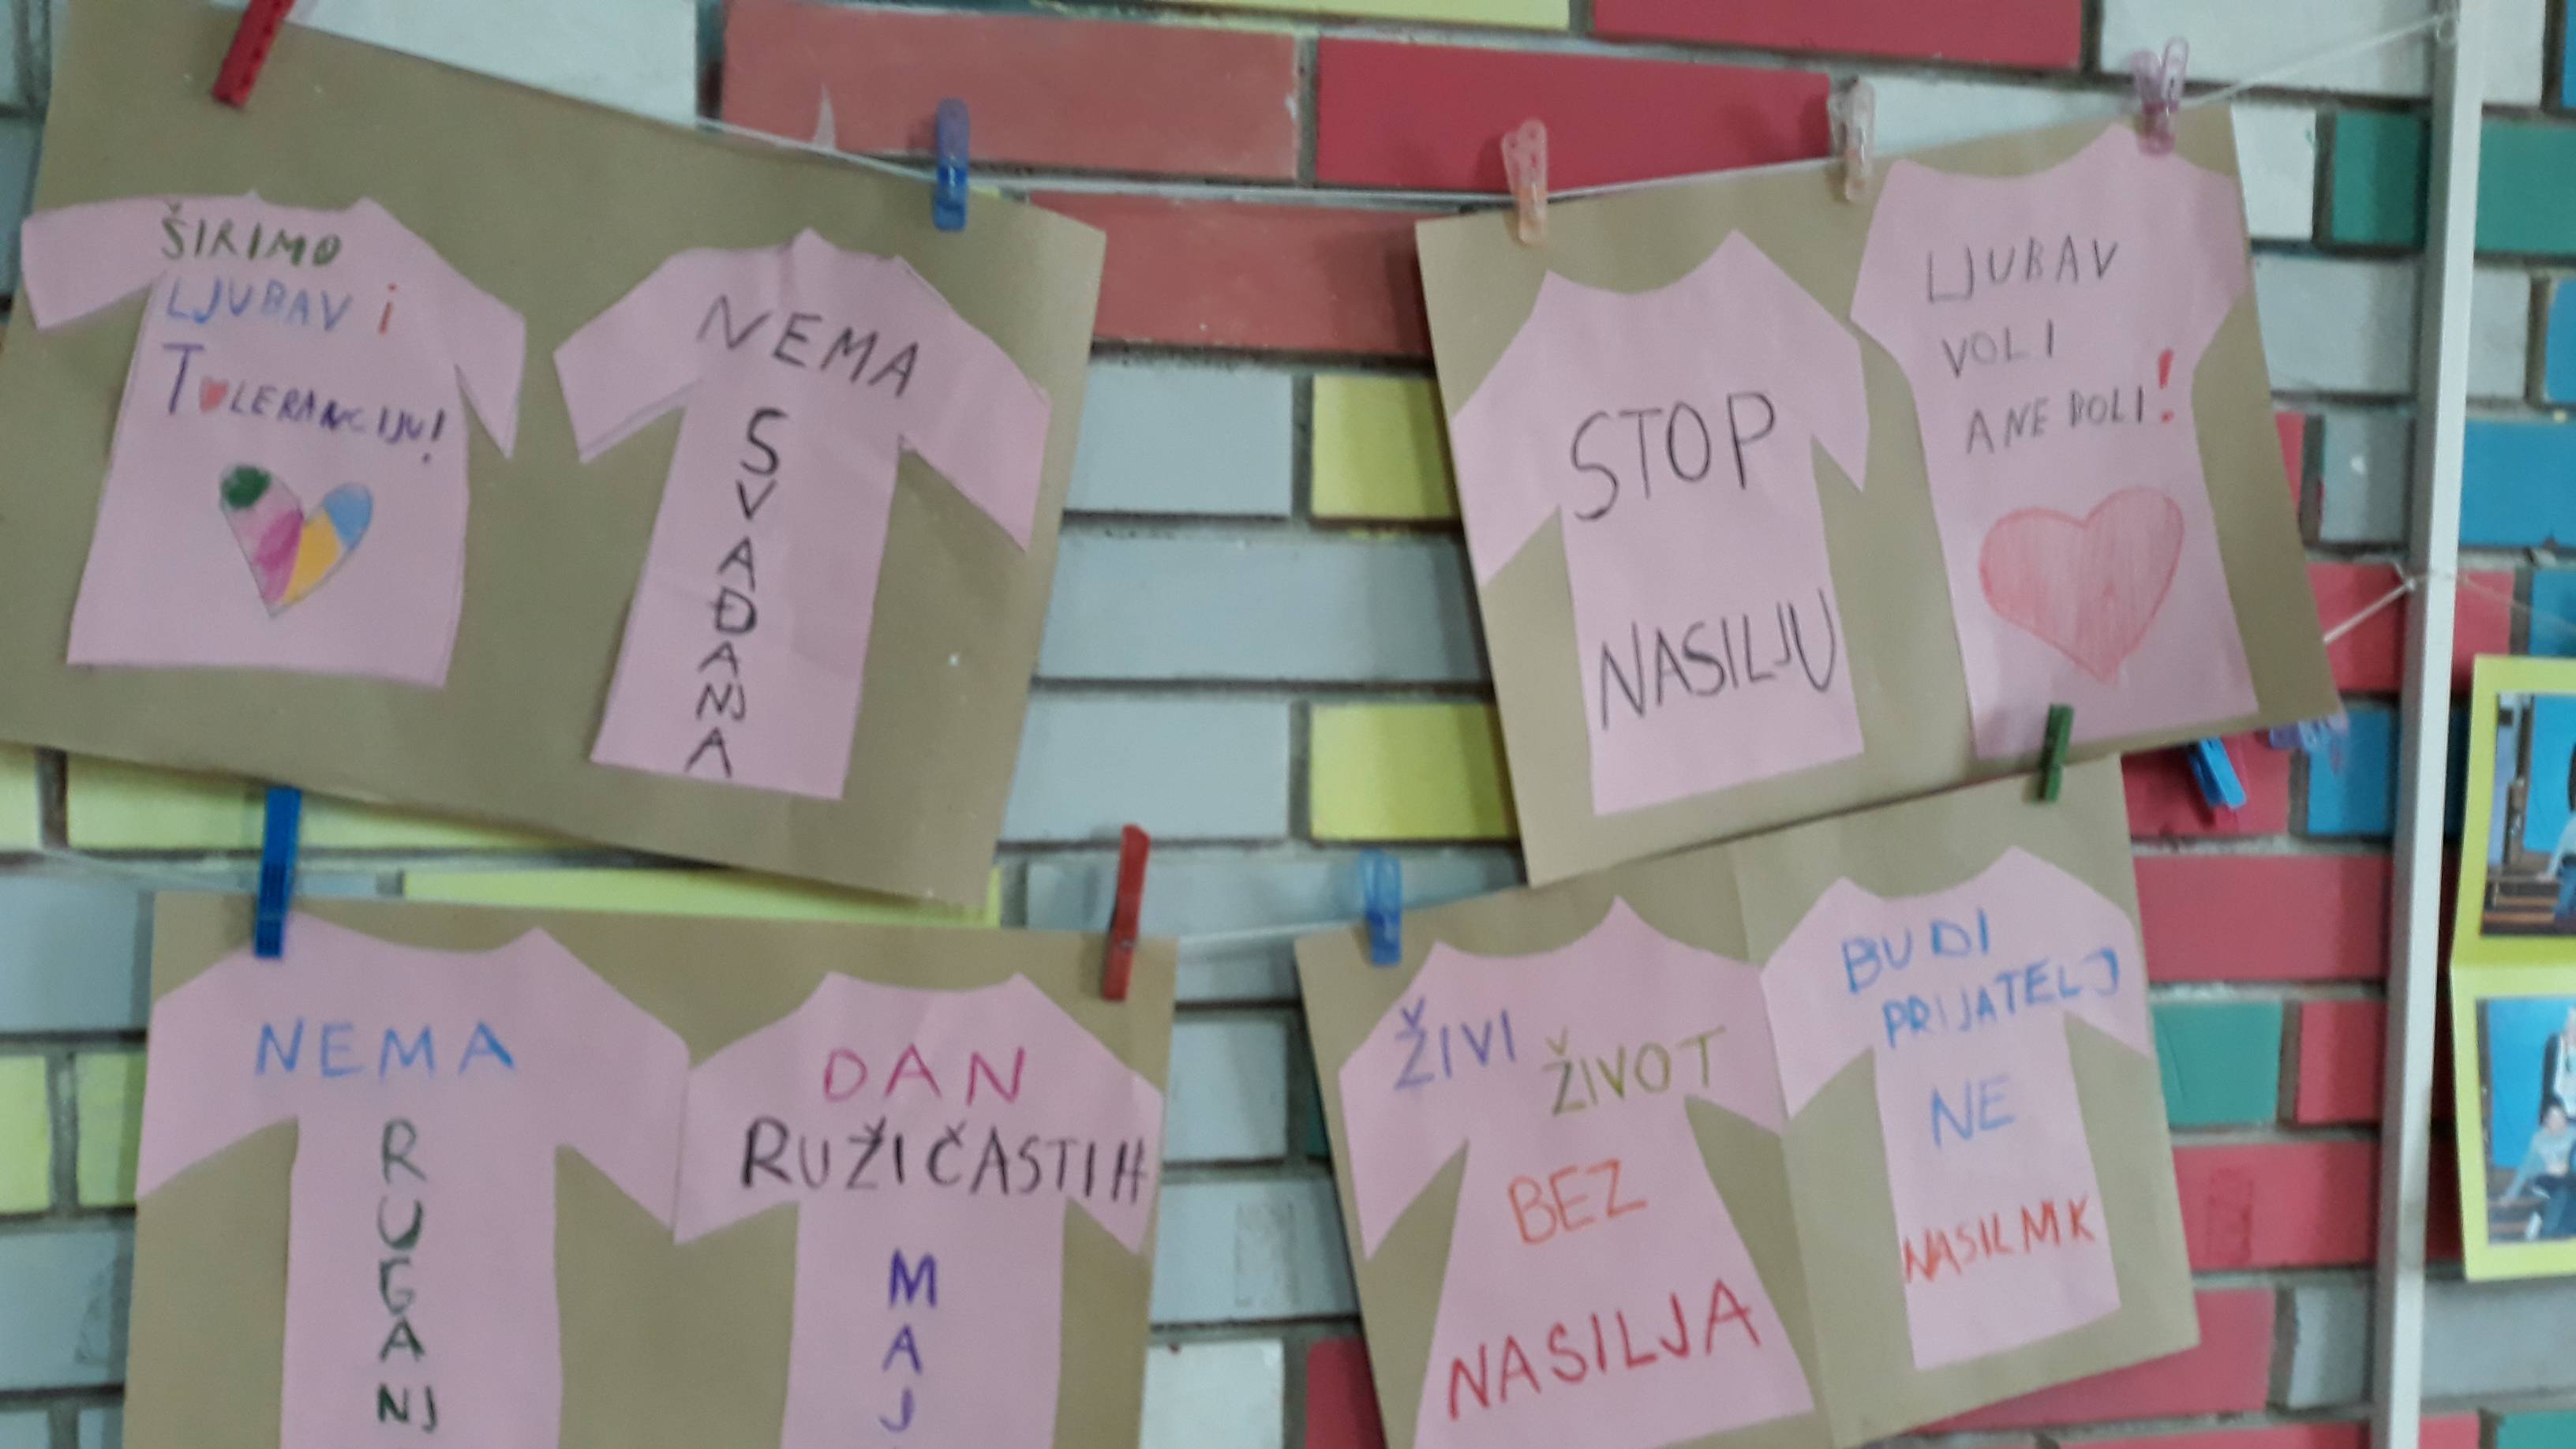 ŠIRIMO
LJUBAV i
TOLERANCIJU!
NEMA
SVAĐANJA
STOP
NASILJU
LJUBAV
VOLI
A NE BOLI!
NEMA
RUGANJ
DAN
RUŽIČASTIH
MAJ
ŽIVI ŽIVOT
BEZ
NASILJA
BUDI
PRIJATELJ
NE
NASILNIK